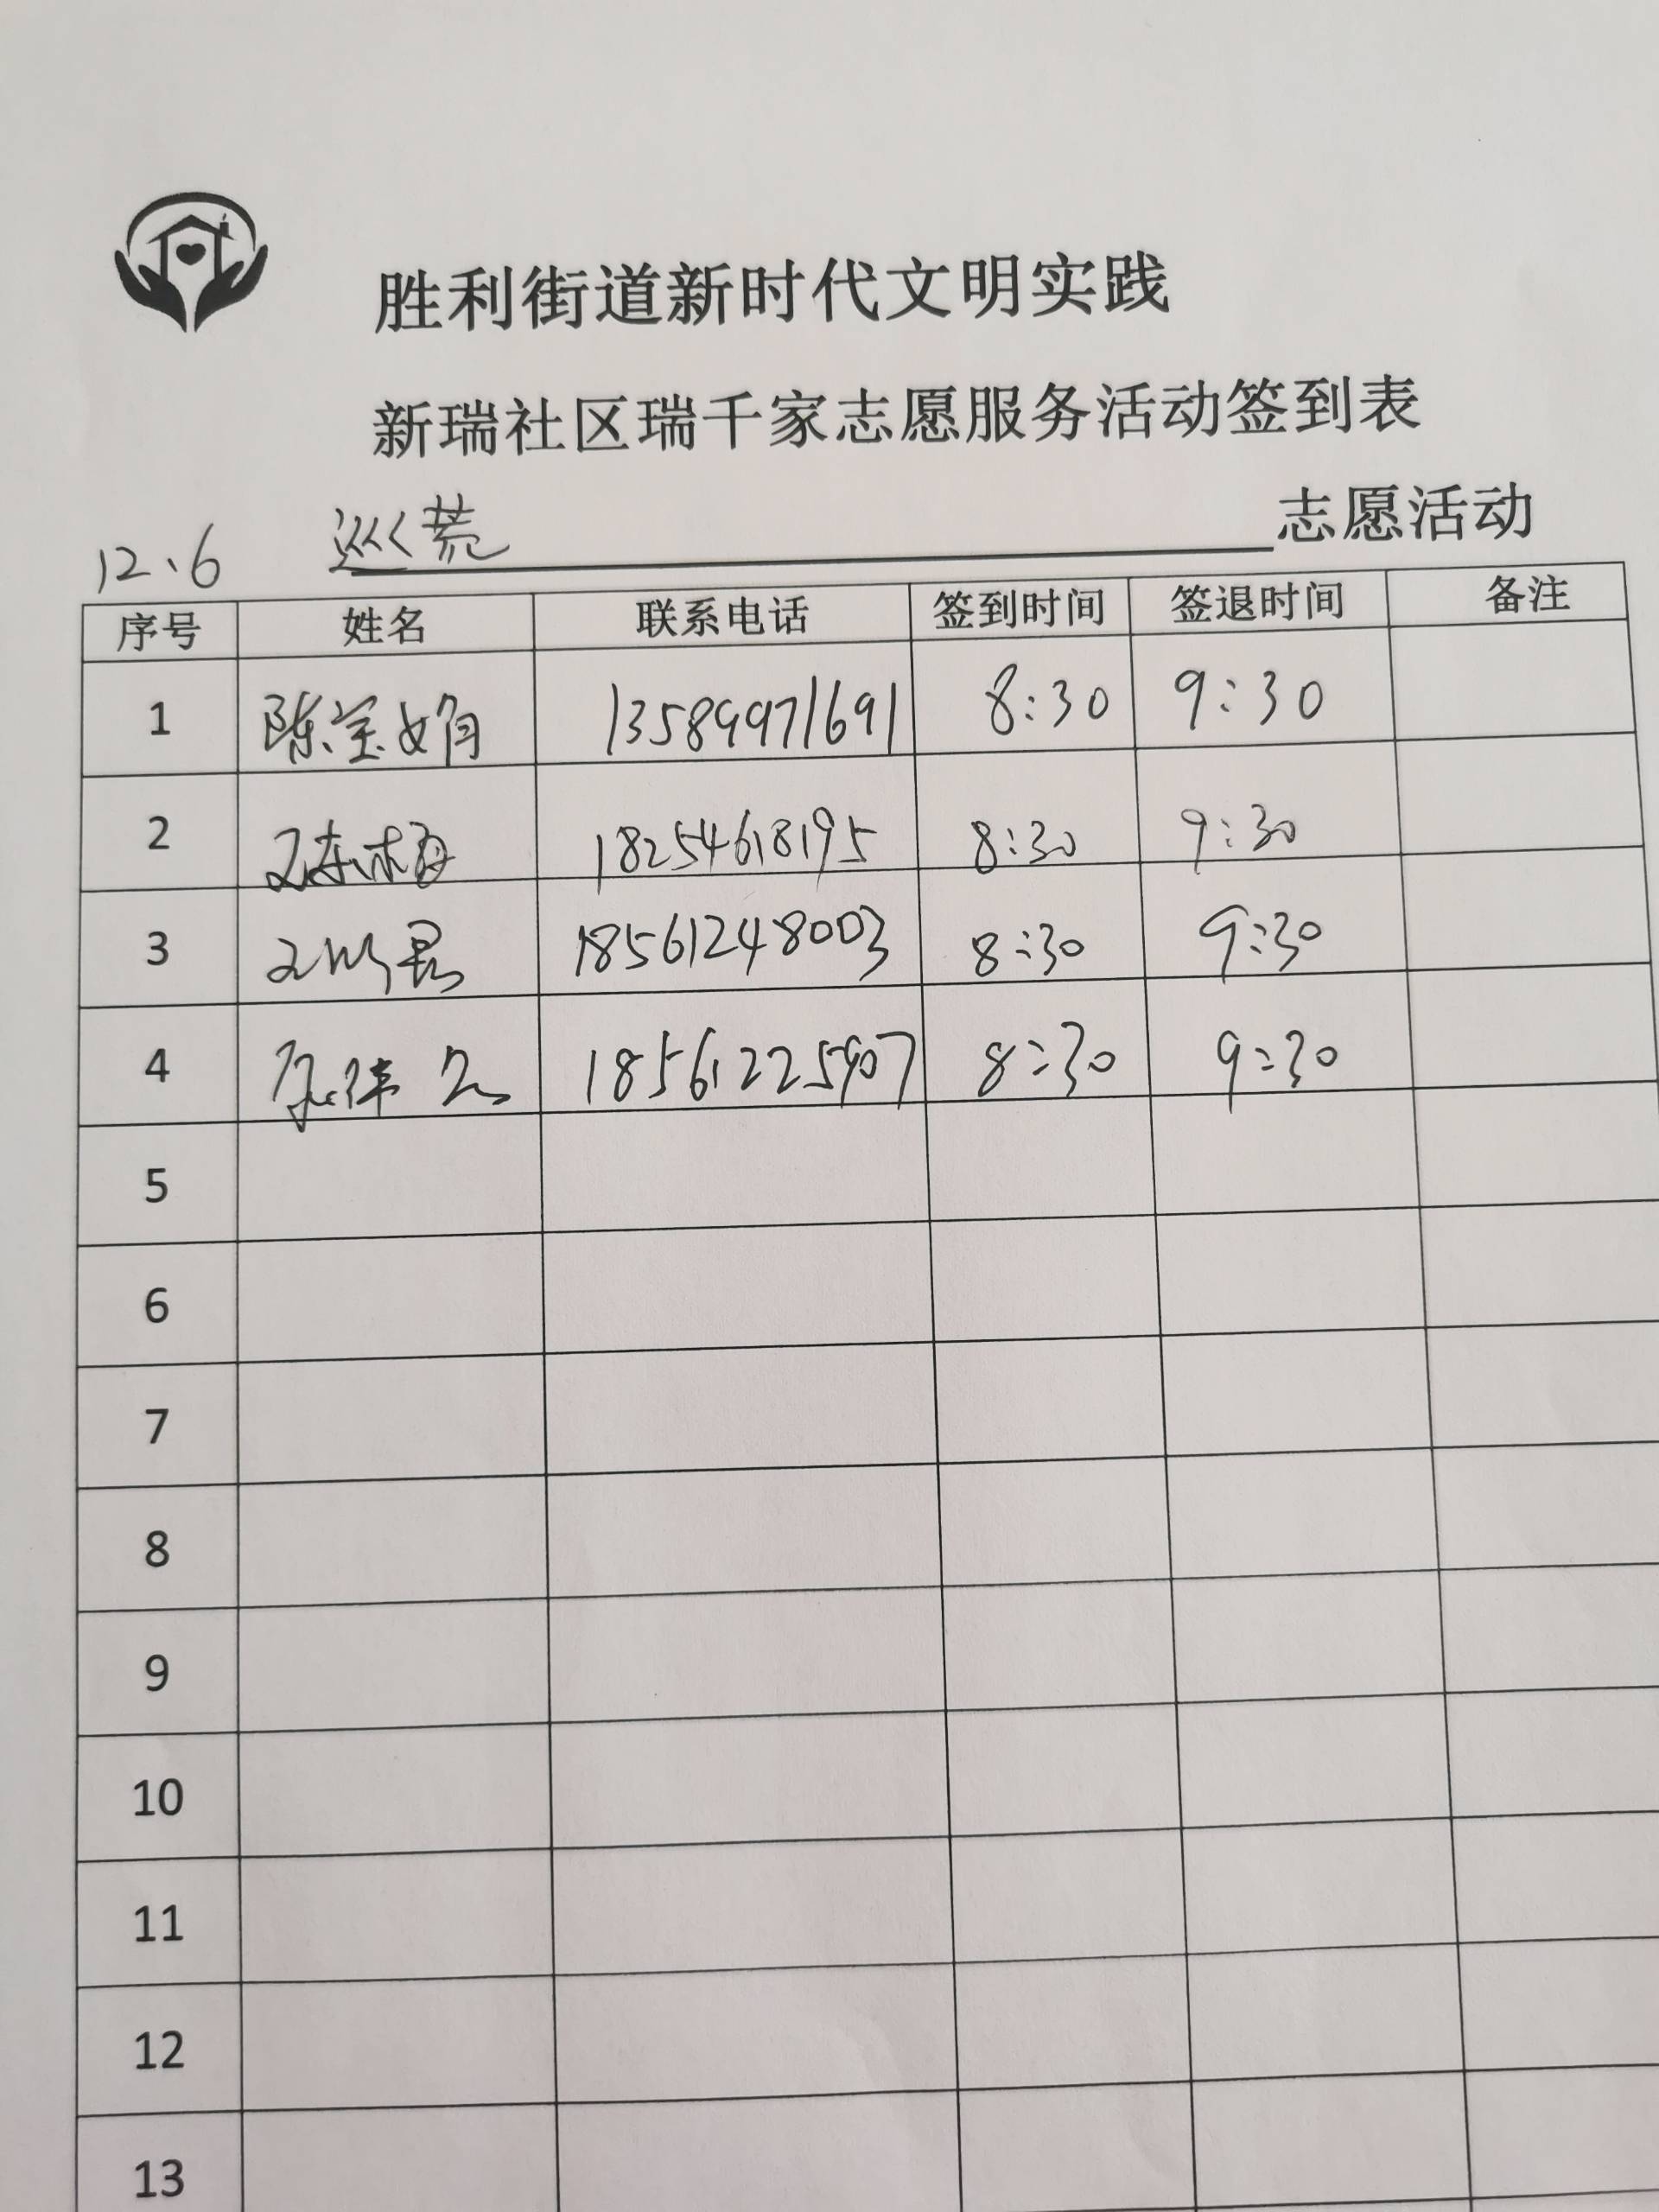 胜利街道新时代文明实践
新瑞社区瑞千家志愿服务活动签到表
12、6 巡荒 志愿活动
序号 姓名 联系电话 签到时间 签退时间 备注
1 陈宝娟 13589971691 8:30 9:30
2 18254618195 8:30 9:30
3 18561248003 8:30 9:30
4 18561225907 8:30 9:30
5
6
7
8
9
10
11
12
13